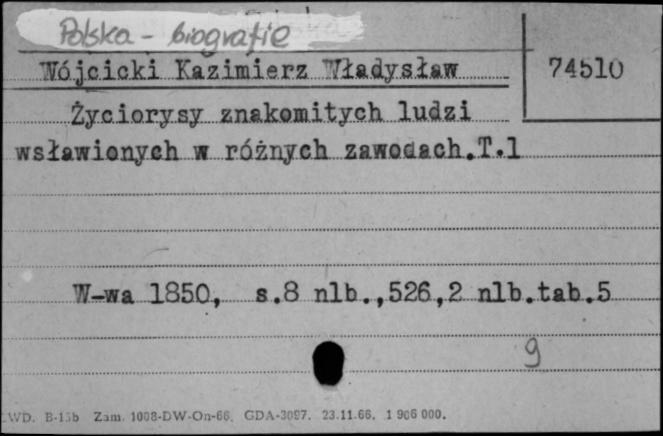 Polska - biografie
Wójcicki Kazimierz Władysław
74510
Życiorysy znakomitych ludzi
wsławionych w różnych zawodach.T.1
W-wa 1850, s.8 nlb.,526,2 nlb.tab.5
9
LWD. B-15b Zam. 1008-DW-On-66. GDA-3097. 23.11.66. 1 906 000.